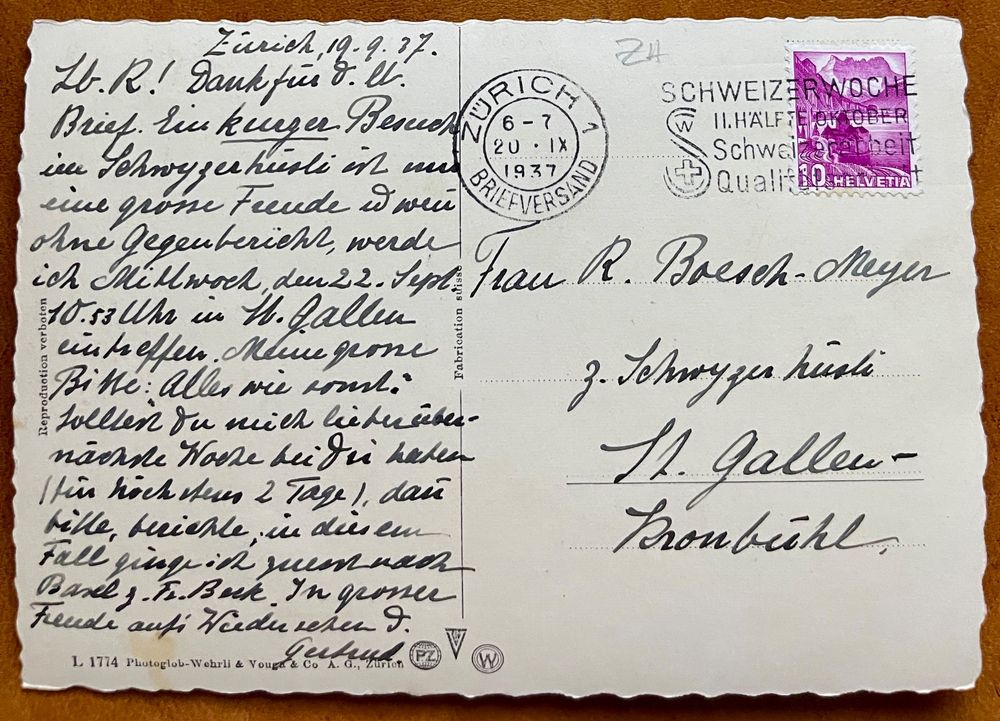 Zürich, 19.9.37.
Lb. R! Dank für d. lb.
Brief. Ein kurzer Besuch
im Schwyzerhüsli ist mir
eine grosse Freude u wenn
ohne Gegenbericht, werde
ich Mittwoch, den 22. Sept.
10.53 Uhr in St. Gallen
eintreffen. Meine grosse
Bitte: Alles wie sonst!
Solltest Du mich lieber über-
nächste Woche bei Dir haben
(für höchstens 2 Tage), dan
bitte, berichte, in diesem
Fall ginge ich zuerst nach
Basel z. Fr. Beck. In grosser
Freude aufs Wiedersehen d.
Gertrud
L 1774 Photoglob-Wehrli & Vouga & Co A. G., Zürich
PZ
W
Reproduction verboten
Fabrication suisse
ZH
ZÜRICH 1
6-7
20·IX
1937
BRIEFVERSAND
SCHWEIZERWOCHE
II. HÄLFTE OKTOBER
Schweizerarbeit
Qualitätsarbeit
W
10 HELVETIA
Frau R. Boesch-Meyer
z. Schwyzerhüsli
St. Gallen-
Kronbühl.